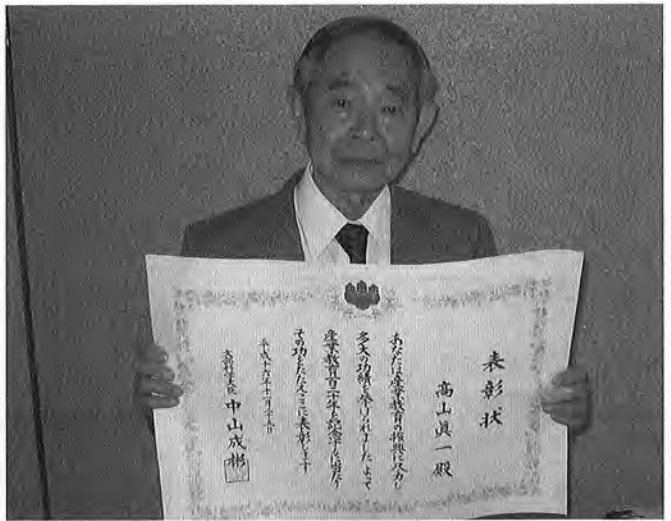 表彰状
高山眞一殿
あなたは産業教育の振興に尽力し
多大の功績を挙げられました よって
産業教育百二十年を記念するに当たり
その功をたたえここに表彰します
平成十六年十一月二十六日
文部科学大臣 中山成彬